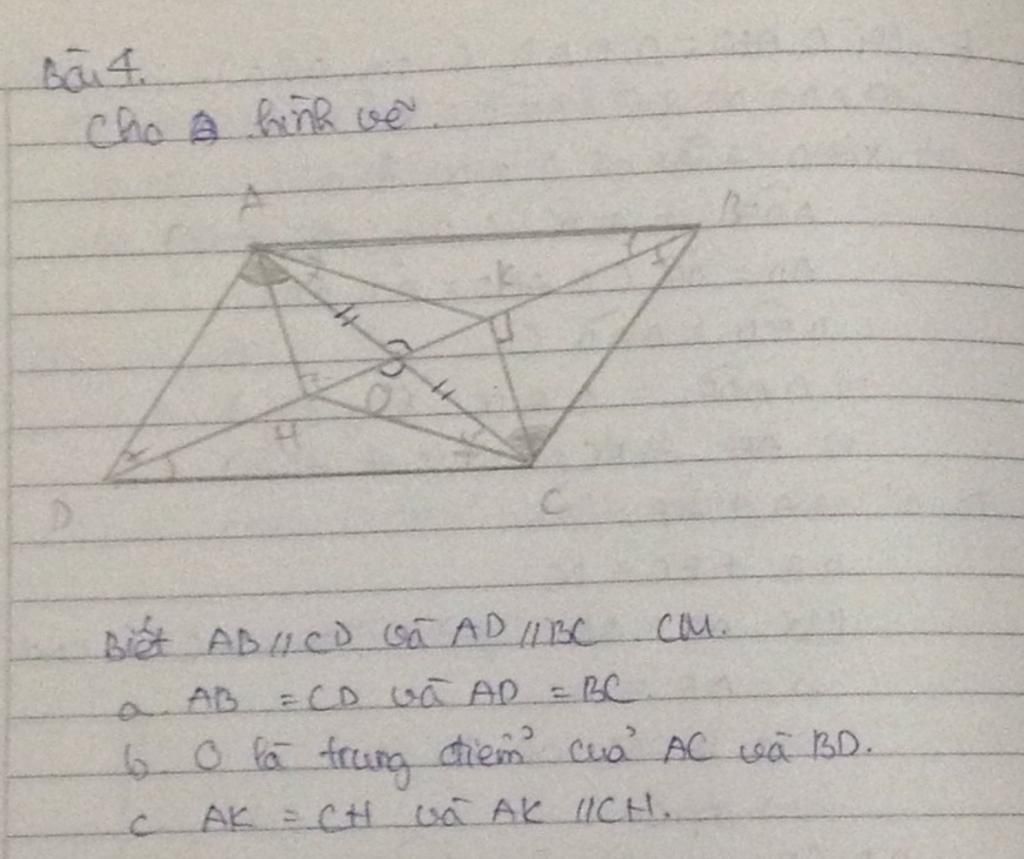 Bài 4.
Cho hình vẽ.
A
B
K
O
H
D
C
Biết AB // CD và AD // BC CM.
a. AB = CD và AD = BC
b, O là trung điểm của AC và BD.
c AK = CH và AK // CH.